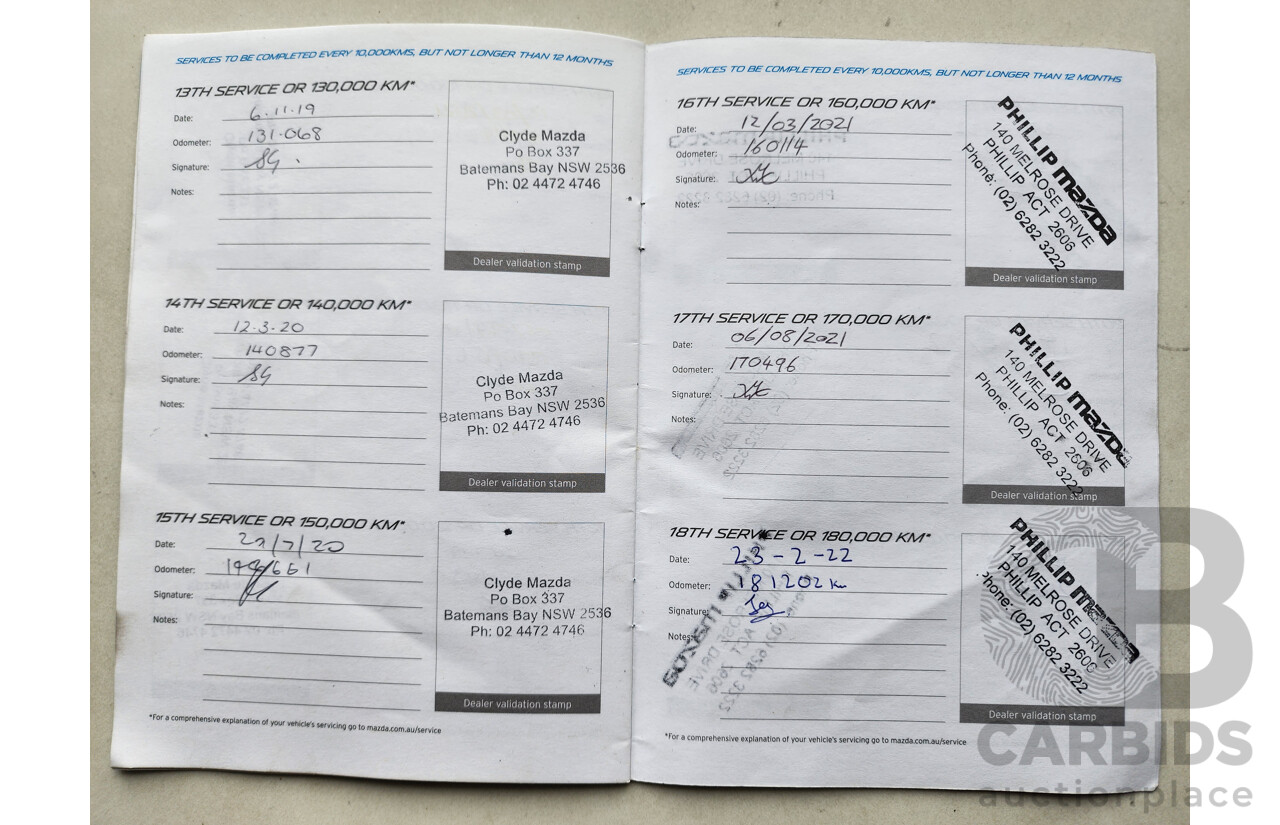 SERVICES TO BE COMPLETED EVERY 10,000KMS, BUT NOT LONGER THAN 12 MONTHS
13TH SERVICE OR 130,000 KM*
Date: 6.11.19
Odometer: 131.068
Signature:
Notes:
Clyde Mazda
Po Box 337
Batemans Bay NSW 2536
Ph: 02 4472 4746
Dealer validation stamp
14TH SERVICE OR 140,000 KM*
Date: 12.3.20
Odometer: 140877
Signature:
Notes:
Clyde Mazda
Po Box 337
Batemans Bay NSW 2536
Ph: 02 4472 4746
Dealer validation stamp
15TH SERVICE OR 150,000 KM*
Date:
Odometer:
Signature:
Notes:
Clyde Mazda
Po Box 337
Batemans Bay NSW 2536
Ph: 02 4472 4746
Dealer validation stamp
*For a comprehensive explanation of your vehicle's servicing go to mazda.com.au/service
SERVICES TO BE COMPLETED EVERY 10,000KMS, BUT NOT LONGER THAN 12 MONTHS
16TH SERVICE OR 160,000 KM*
Date: 12/03/2021
Odometer: 160114
Signature:
Notes:
PHILLIP mazda
140 MELROSE DRIVE
PHILLIP ACT 2606
Phone: (02) 6282 3222
Dealer validation stamp
17TH SERVICE OR 170,000 KM*
Date: 06/08/2021
Odometer: 170496
Signature:
Notes:
PHILLIP mazda
140 MELROSE DRIVE
PHILLIP ACT 2606
Phone: (02) 6282 3222
Dealer validation stamp
18TH SERVICE OR 180,000 KM*
Date: 23-2-22
Odometer: 181202 km
Signature:
Notes:
PHILLIP mazda
140 MELROSE DRIVE
PHILLIP ACT 2606
Phone: (02) 6282 3222
Dealer validation stamp
*For a comprehensive explanation of your vehicle's servicing go to mazda.com.au/service
B
CARBIDS
auctionplace